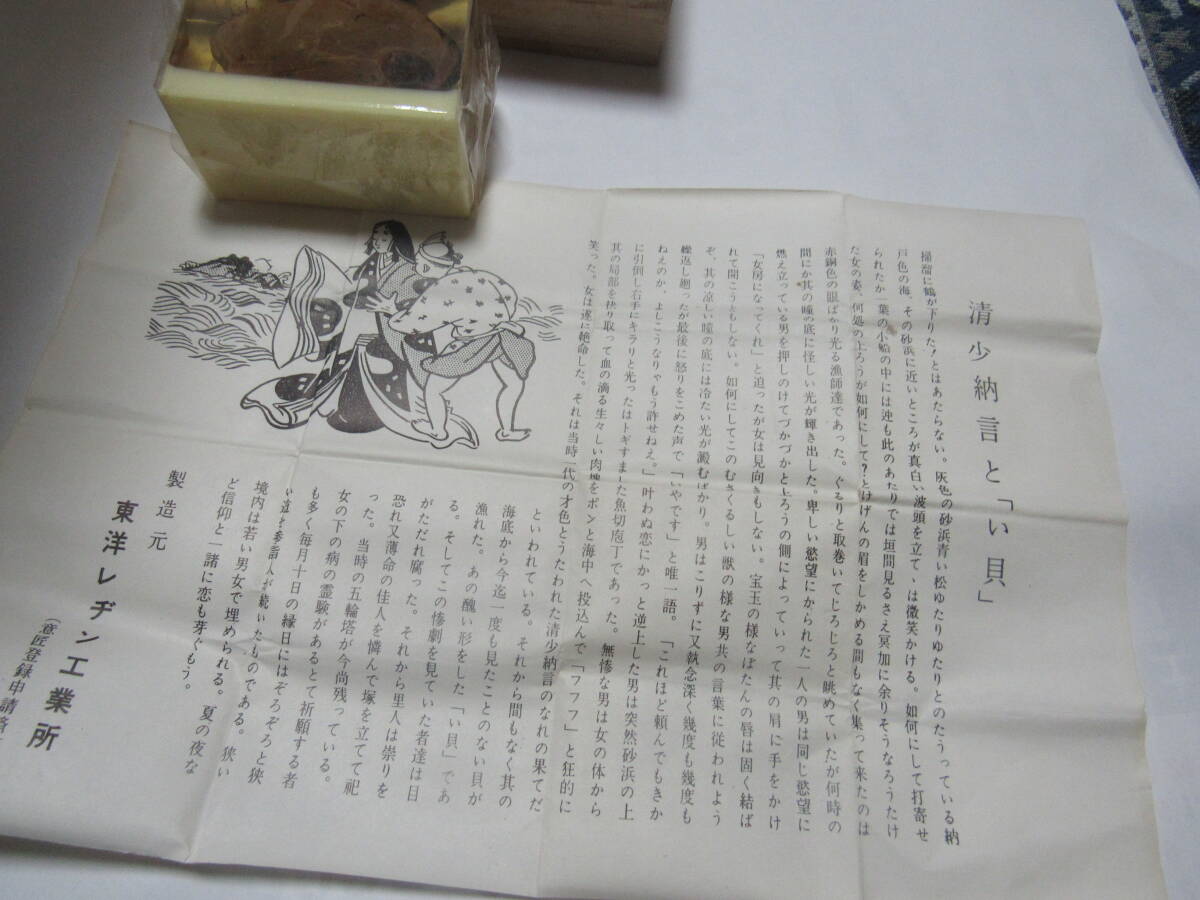 清少納言と「い貝」
掃溜に鶴が下りた！とはあたらない。灰色の砂浜青い松ゆたりゆたりとのたうっている納
戸色の海、その砂浜に近いところが真白い波頭を立てゝは微笑かける。如何にして打寄せ
られたか一葉の小船の中には迚も此のあたりでは垣間見るさえ冥加に余りそうなろうたけ
た女の姿、何処の上ろうが如何にして？とけげんの眉をしかめる間もなく集って来たのは
赤銅色の眼ばかり光る漁師達であった。ぐるりと取巻いてじろじろと眺めていたが何時の
間にか其の瞳の底に怪しい光が輝き出した。卑しい慾望にかられた一人の男は同じ慾望に
燃え立っている男を押しのけてづかづかと上ろうの側によっていって其の肩に手をかけ
「女房になってくれ」と迫ったが女は見向きもしない。宝玉の様なぼたんの唇は固く結ば
れて開こうともしない。如何にしてこのむさくるしい獣の様な男共の言葉に従われよう
ぞ、其の凉しい瞳の底には冷たい光が澱むばかり。男はこりずに又執念深く幾度も幾度も
繰返し廻ったが最後に怒りをこめた声で「いやです」と唯一語。「これほど頼んでもきか
ねえのか、よしこうなりゃもう許せねえ。」叶わぬ恋にかっと逆上した男は突然砂浜の上
に引倒し右手にキラリと光ったはトギすました魚切庖丁であった。無惨な男は女の体から
其の局部を抉り取って血の滴る生々しい肉塊をポンと海中へ投込んで「フフフ」と狂的に
笑った。女は遂に絶命した。それは当時一代の才色とうたわれた清少納言のなれの果てだ
といわれている。それから間もなく其の
海底から今迄一度も見たことのない貝が
漁れた。あの醜い形をした「い貝」であ
る。そしてこの惨劇を見ていた者達は目
がただれ腐った。それから里人は崇りを
恐れ又薄命の佳人を憐んで塚を立てて祀
った。当時の五輪塔が今尚残っている。
女の下の病の霊験があるとて祈願する者
も多く毎月十日の縁日にはぞろぞろと狭
い道を参詣人が続いたものである。狭い
境内は若い男女で埋められる。夏の夜な
ど信仰と一諸に恋も芽ぐもう。
製造元
東洋レヂン工業所
（意匠登録申請済